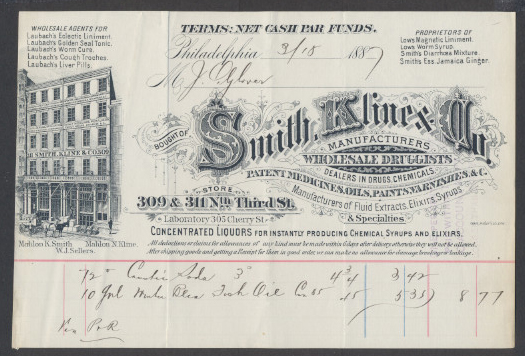 WHOLESALE AGENTS FOR
Laubach's Eclectic Liniment.
Laubach's Golden Seal Tonic.
Laubach's Worm Cure.
Laubach's Cough Troches.
Laubach's Liver Pills.
TERMS: NET CASH PAR FUNDS.
PROPRIETORS OF
Lows Magnetic Liniment.
Lows Worm Syrup.
Smith's Diarrhœa Mixture.
Smiths Ess. Jamaica Ginger.
Philadelphia 3/18 1887
M J. Glover
BOUGHT OF
Smith, Kline & Co.
MANUFACTURERS
WHOLESALE DRUGGISTS
DEALERS IN DRUGS, CHEMICALS,
PATENT MEDICINES, OILS, PAINTS, VARNISHES, &C.
Manufacturers of Fluid Extracts, Elixirs, Syrups
& Specialties
SMITH, KLINE & CO.
STORE
309 & 311 Nth Third St.
Laboratory 305 Cherry St.
Mahlon K. Smith Mahlon N. Kline.
W.J. Sellers.
CONCENTRATED LIQUORS FOR INSTANTLY PRODUCING CHEMICAL SYRUPS AND ELIXIRS.
All deductions or claims for allowances of any kind must be made within 5 days after delivery otherwise they will not be allowed.
After shipping goods and getting a Receipt for them in good order, we can make no allowance for damage, breaking or leakage.
72 Soda 3 4 3/4 3 42
10 Gal Fish Oil 45 5 35 8 77
Via P&R